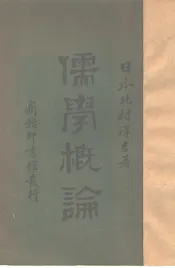 日本北村澤吉著
儒學概論
商務印書館發行